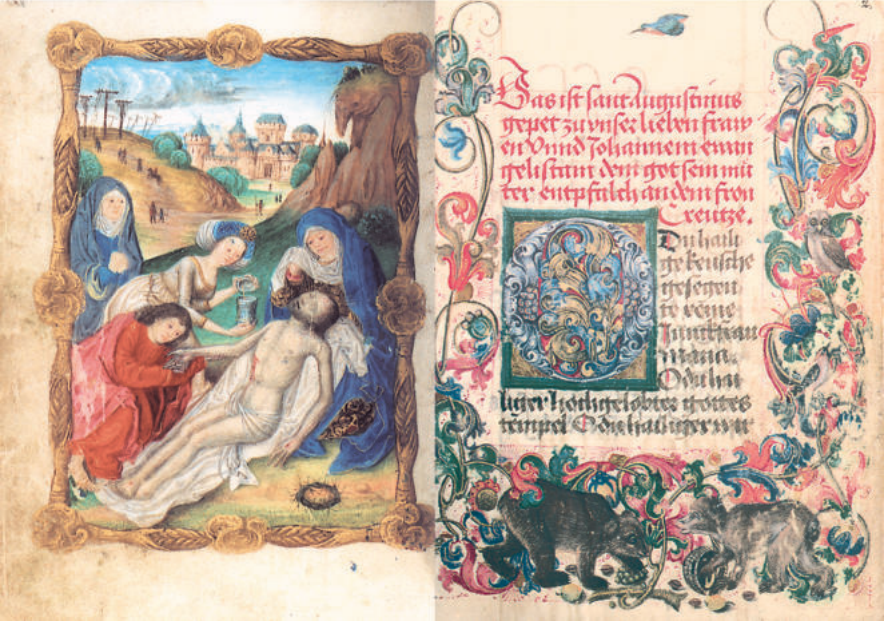 Das ist sant augustinus
gepet zu vnser lieben fraw
en Vnnd Johannem ewan
gelistam dem got sein můt
ter entpfalch an dem fron
Creutze.
O Du haili
ge keusche
gesegen
te reine
Junkfraw
maria.
O du hai
liger hochgelobter gottes
tempel O du hailiger